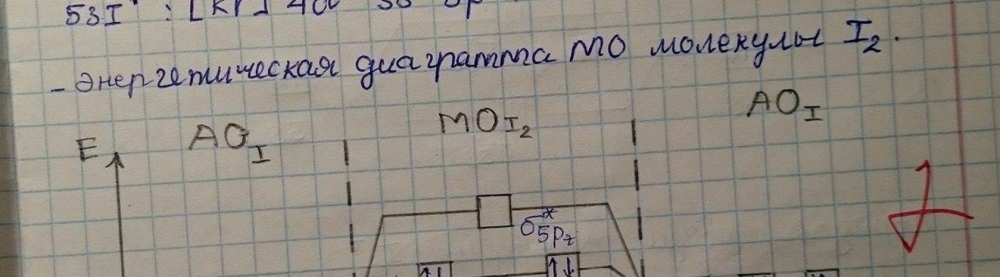 53I : [Kr] 4d 5s 5p
- энергетическая диаграмма МО молекулы I₂.
AO_I MO_I₂ AO_I
E
σ*5p_z
↑↓ ↑↓